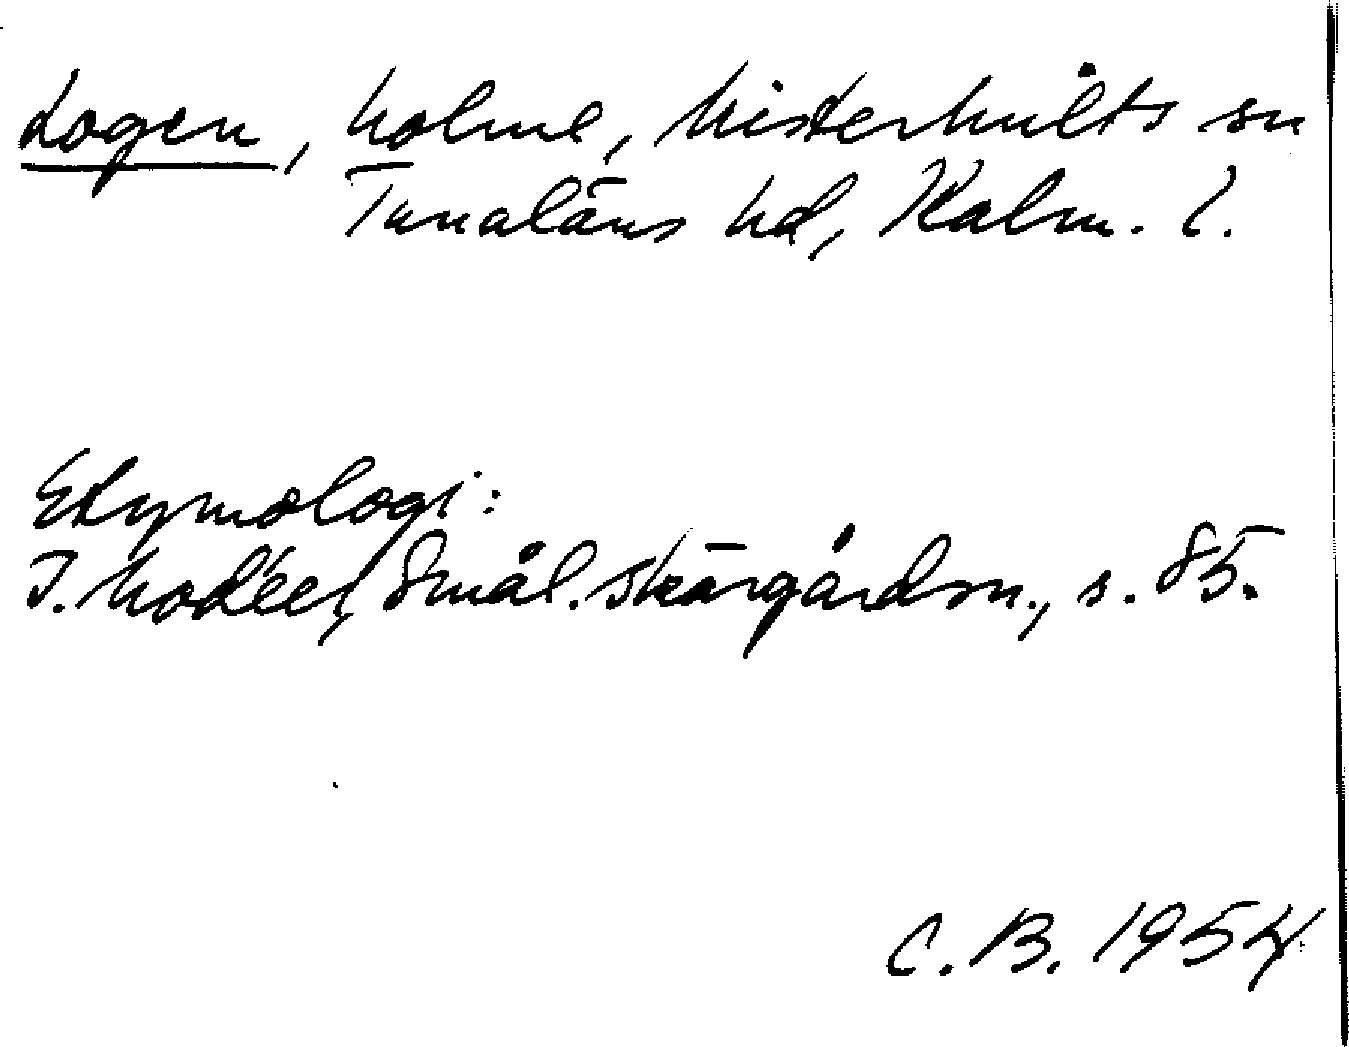 Logen, holme, Misterhults sn
Tunaläns hd, Kalm. l.
Etymologi:
I. Modéer, Smål. skärgårdsn., s. 85.
C. B. 1954